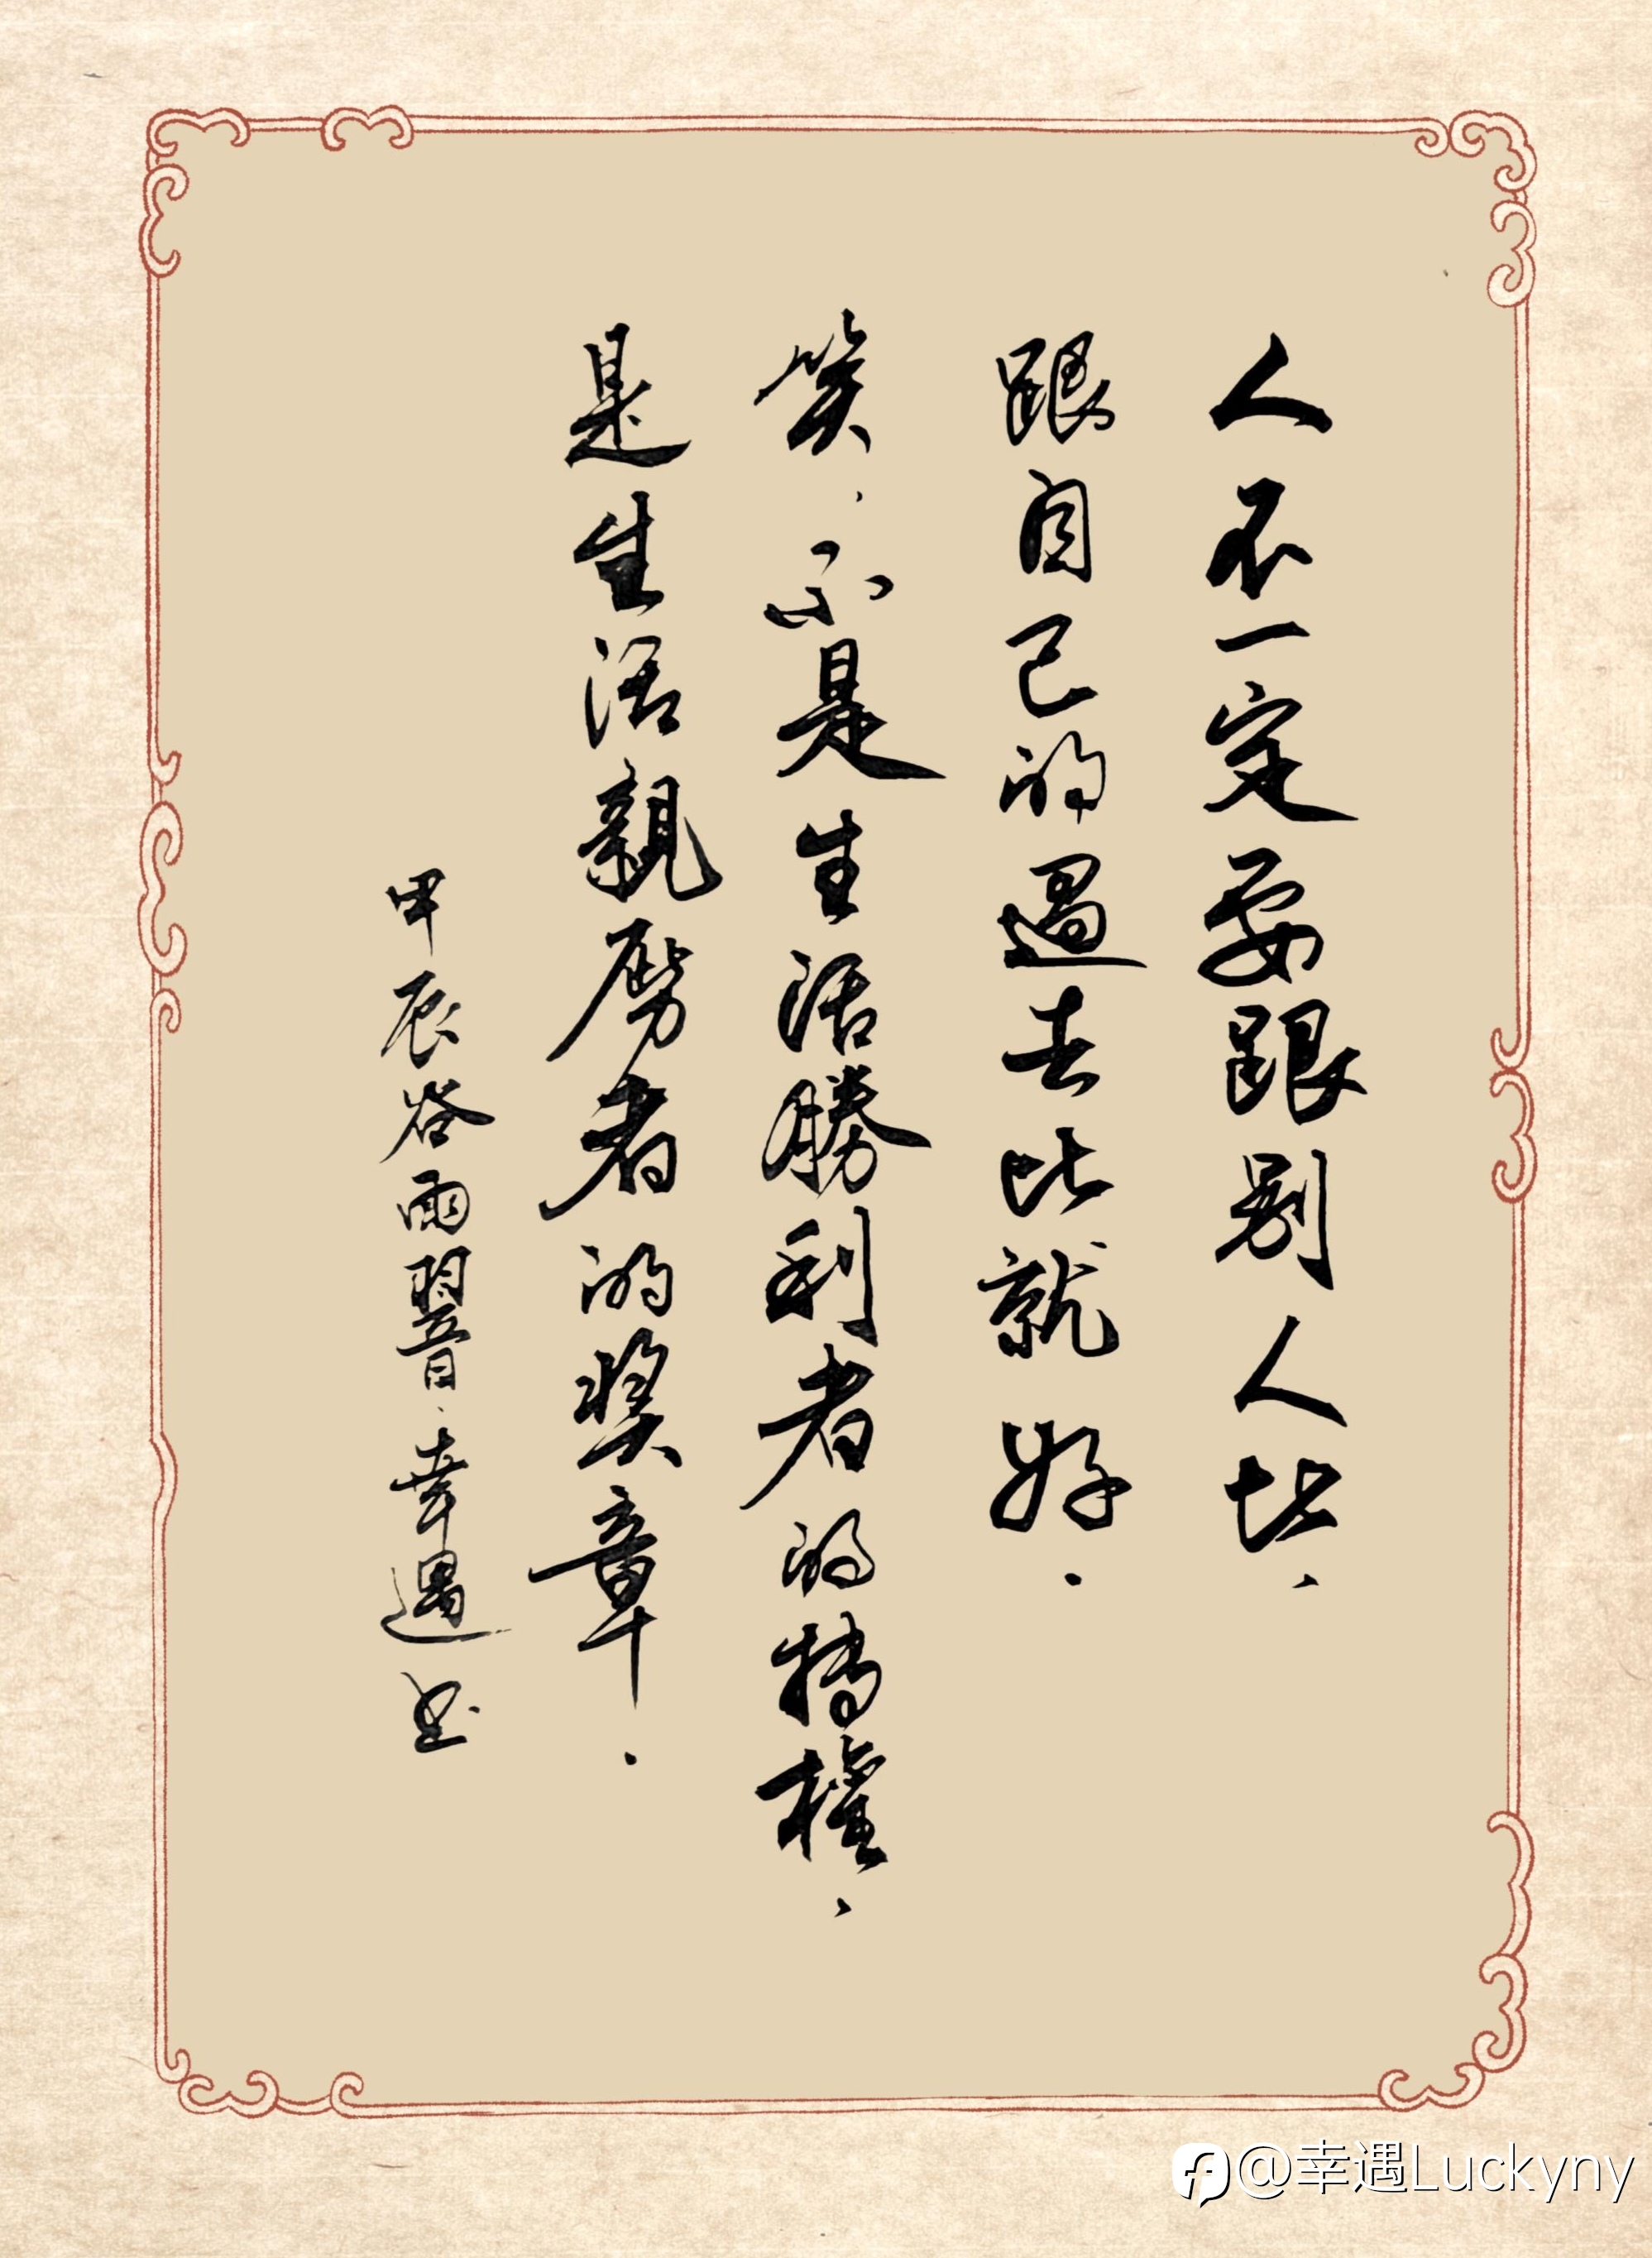 人不一定要跟别人比、
跟自己的過去比就好.
笑.不是生活勝利者的特權、
是生活親歷者的奖章.
甲辰谷雨翌日.幸遇书
@幸遇Luckyny